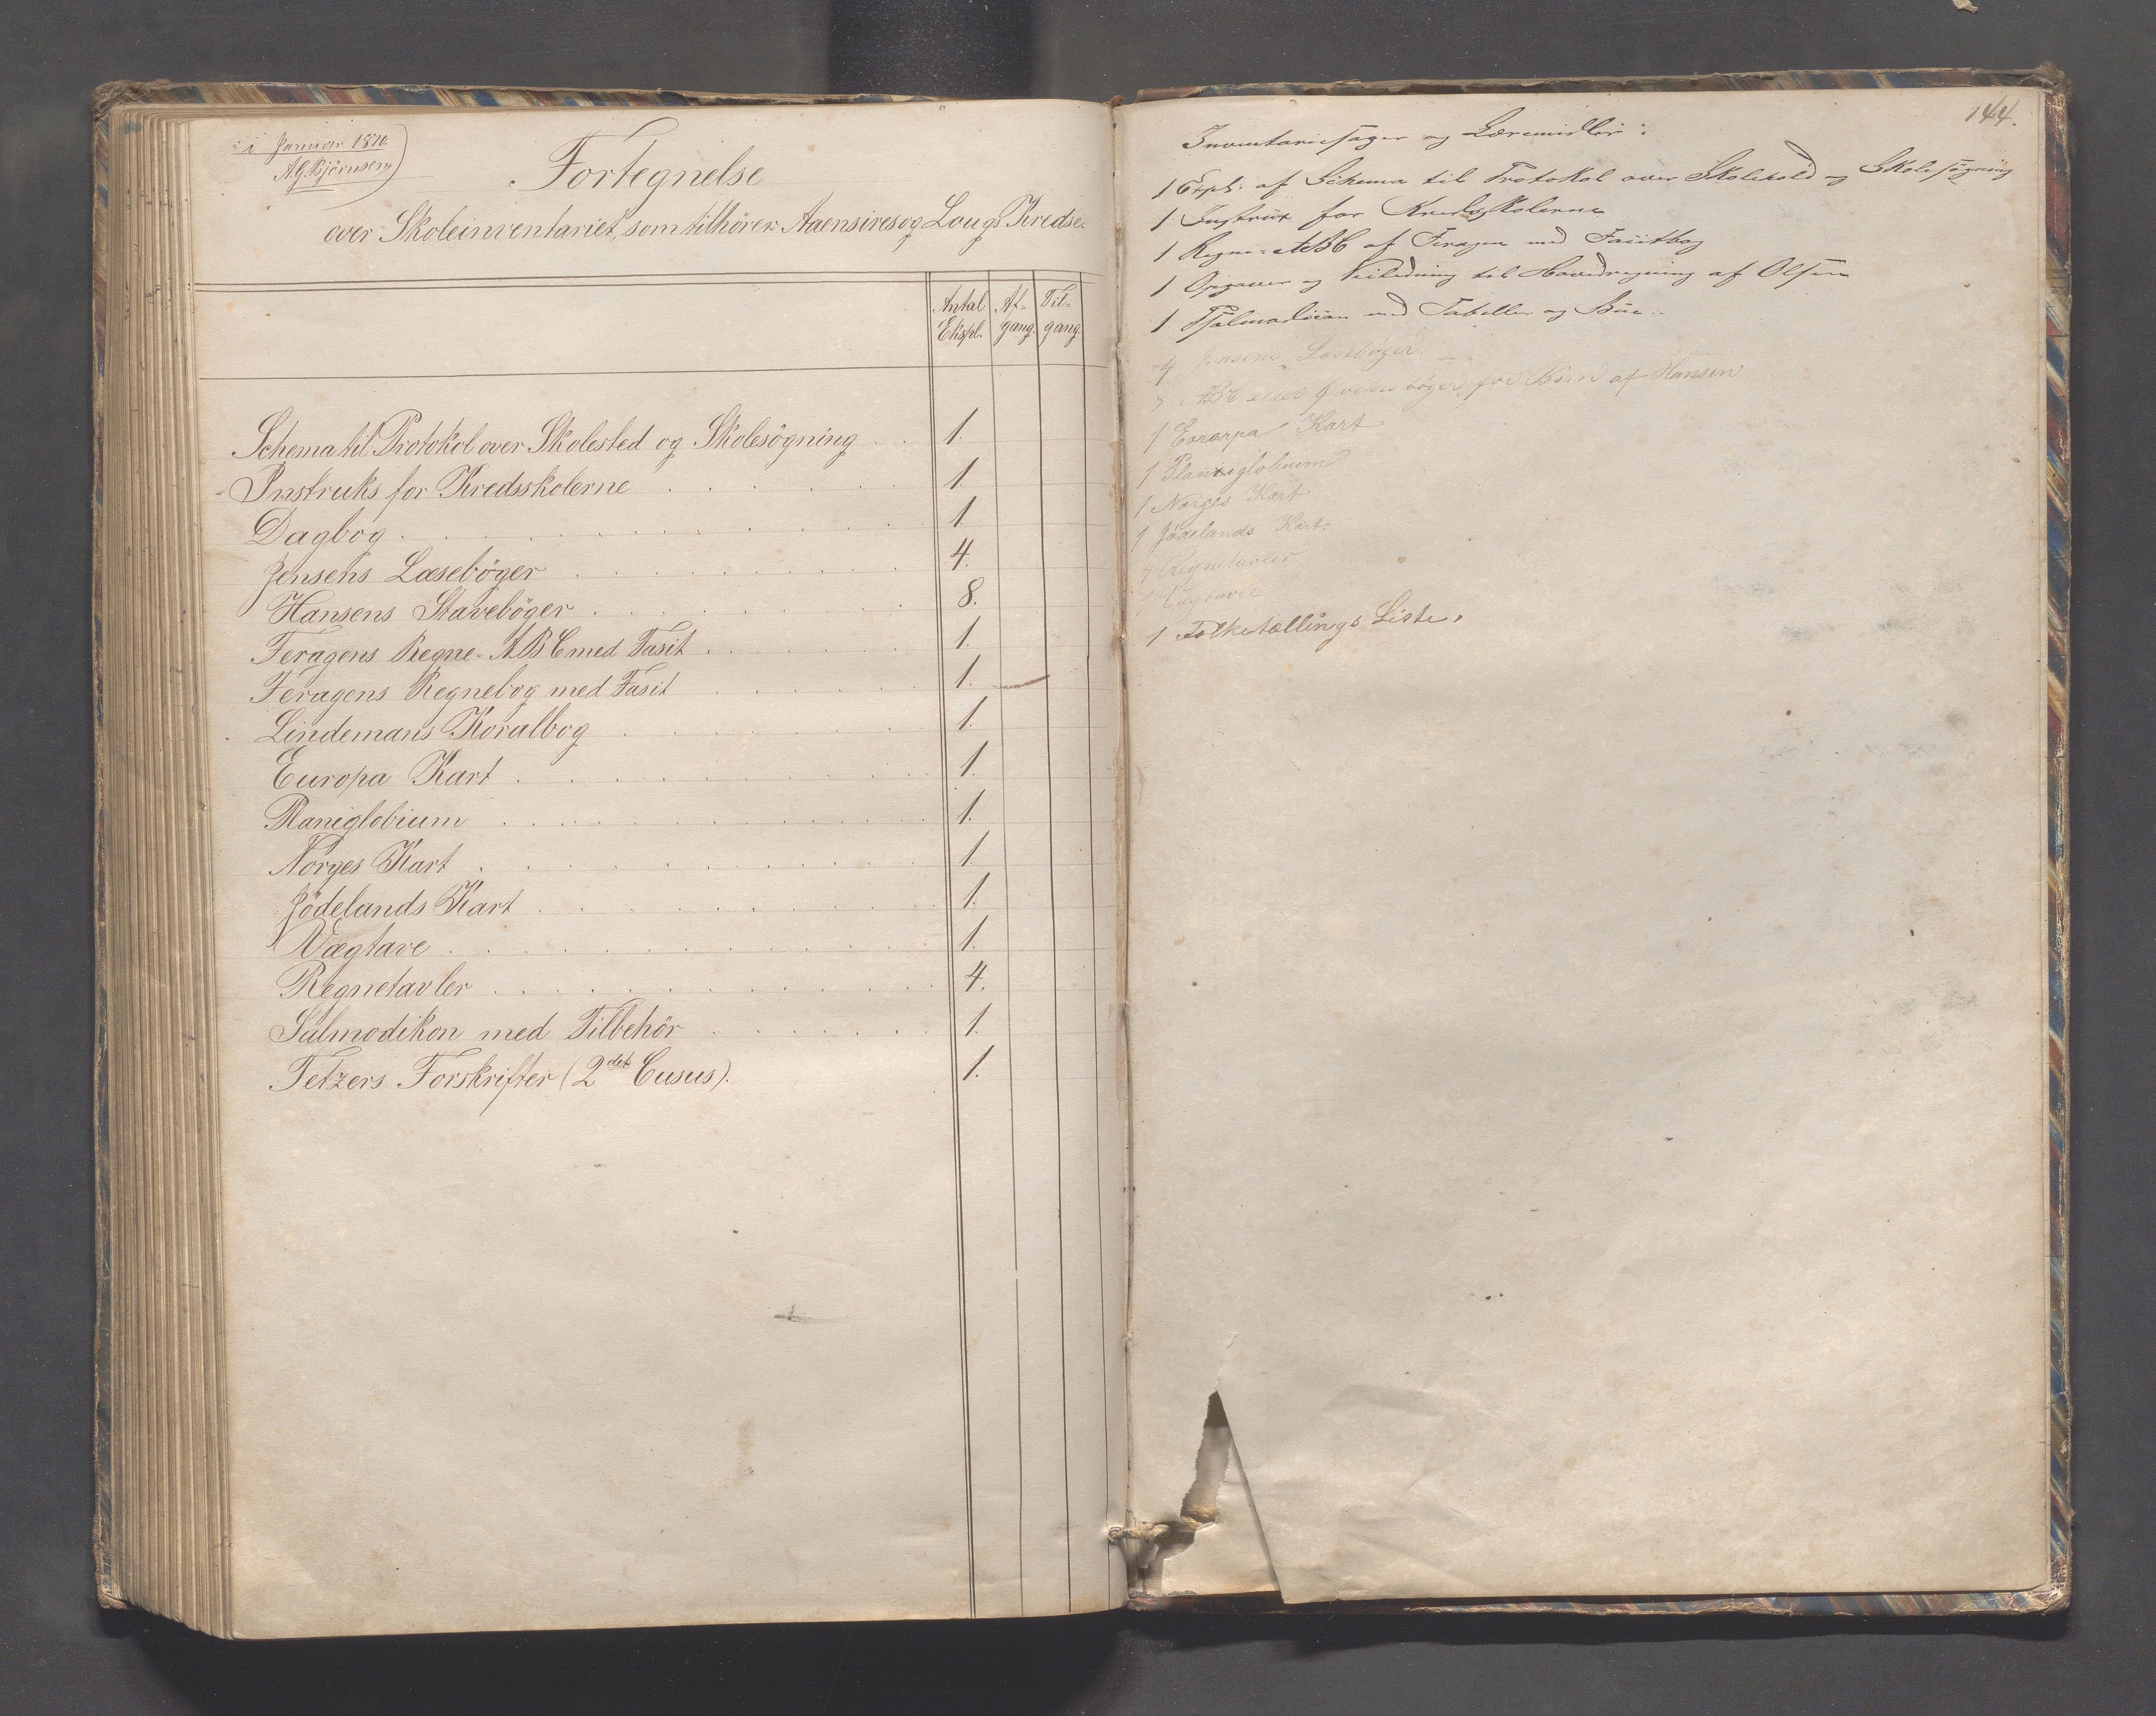 i Januar 1870.
A.G. Bjørnsen)
Fortegnelse
over Skoleinventariet, som tilhører Aaensires og Lougs Kredse.
Antal Ekspl. Af-gang. Til-gang
Schema til Protokol over Skolested og Skolesögning . . 1.
Instruks for Kredsskolerne . . . . . . 1.
Dagbog . . . . . . 1
Jensens Læsebøger . . . . . . 4.
Hansens Stavebøger . . . . . . 8.
Feragens Regne-ABC med Fasit . . . . . . 1.
Feragens Regnebog med Fasit . . . . . . 1. —
Lindemans Koralbog . . . . . . 1.
Europa Kart . . . . . . 1.
Planiglobium . . . . . . 1.
Norges Kart . . . . . . 1
Jödelands Kart . . . . . . 1.
Vægtave . . . . . . 1.
Regnetavler . . . . . . 4.
Salmodikon med Tilbehör . . . . . . 1.
Tetzers Forskrifter (2det Cusus). 1.
144.
Inventariesager og Læremidler:
1 Expl. af Schema til Protokol over Skolehold og Skolesøgning
1 Instrux for Kredsskolerne
1 Regne-ABC af Feragen med Facitbog
1 Opgaver og Veiledning til Hovedregning af Olsen
1 Psalmodicon med Tabeller og Bue
4 Jensens Læsebøger
ABC bøger for Børn af Hansen
1 Europa Kart
1 Planiglobium
1 Norges Kart
1 Jödelands Kart
4 Regnetavler
1 Vægtavle
1 Folketællings Liste.